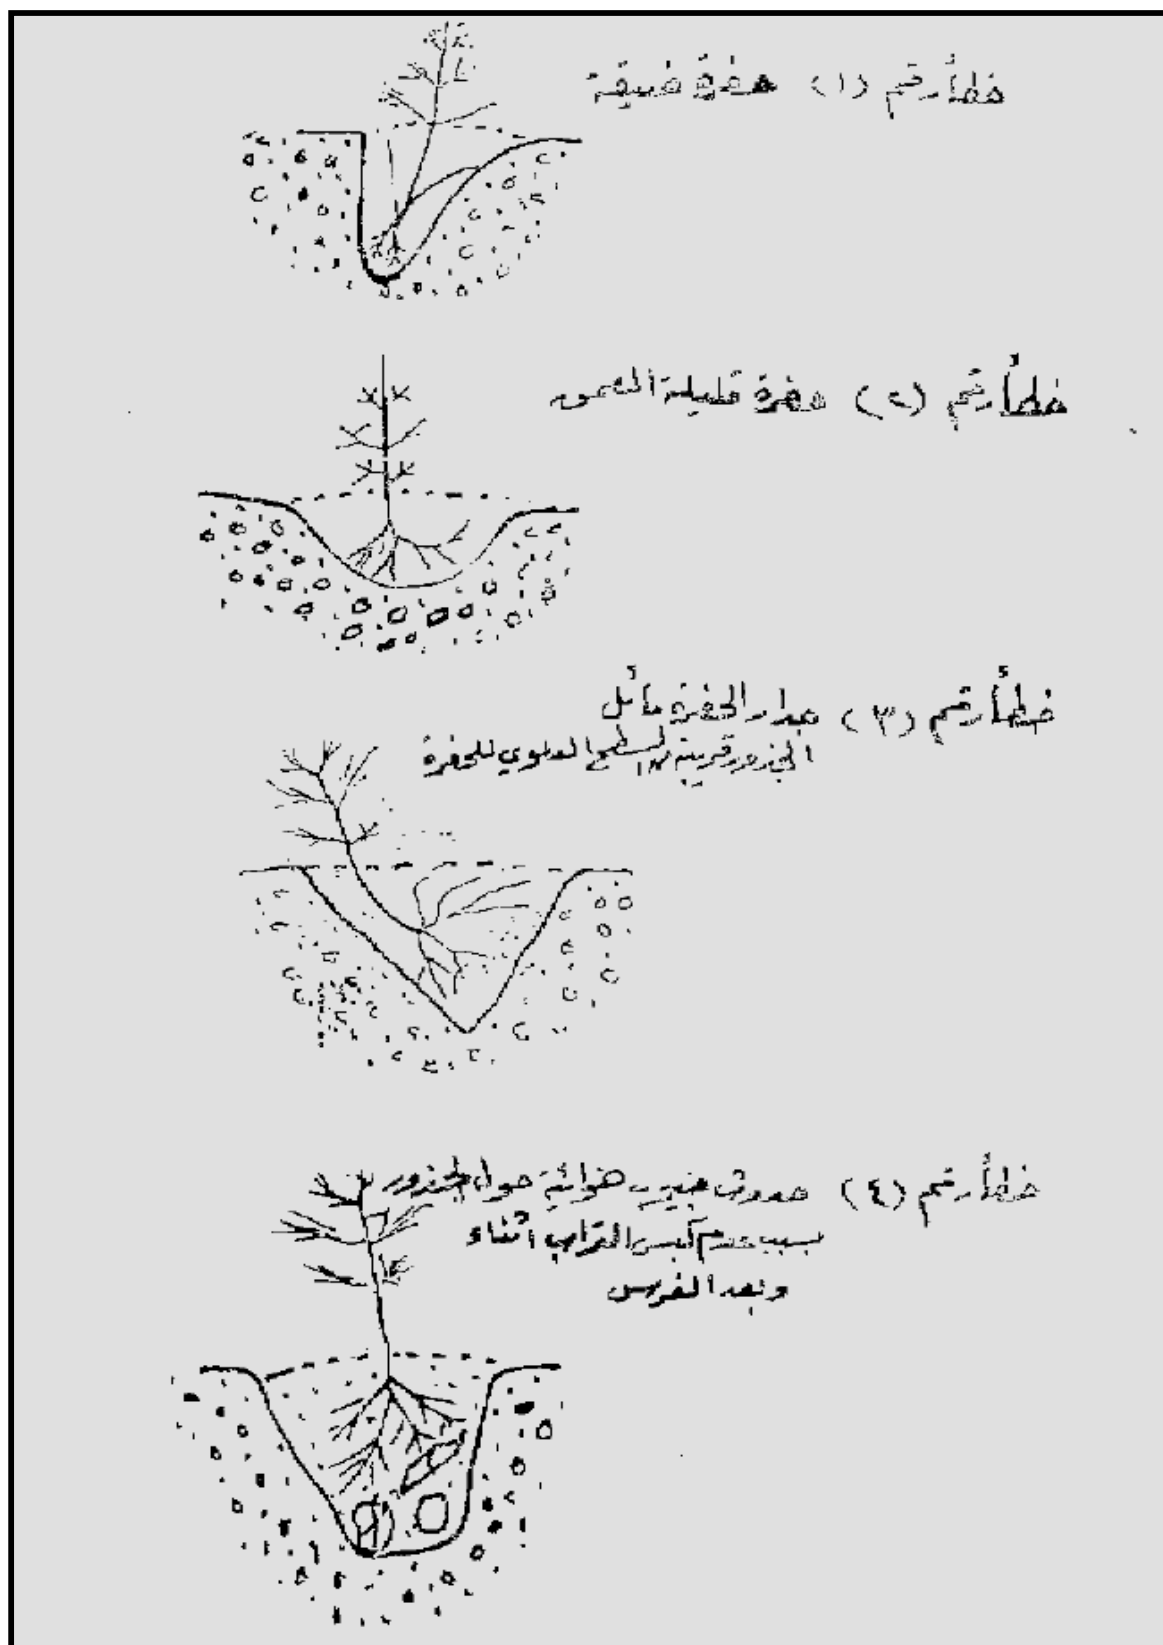 خطأ رقم (١) حفرة ضيقة
خطأ رقم (٢) حفرة قليلة العمق
خطأ رقم (٣) جدار الحفرة مائل
الجذور قريبة من السطح العلوي للحفرة
خطأ رقم (٤) حدوث جيوب هوائية حول الجذور
بسبب عدم كبس التراب أثناء
وبعد الغرس